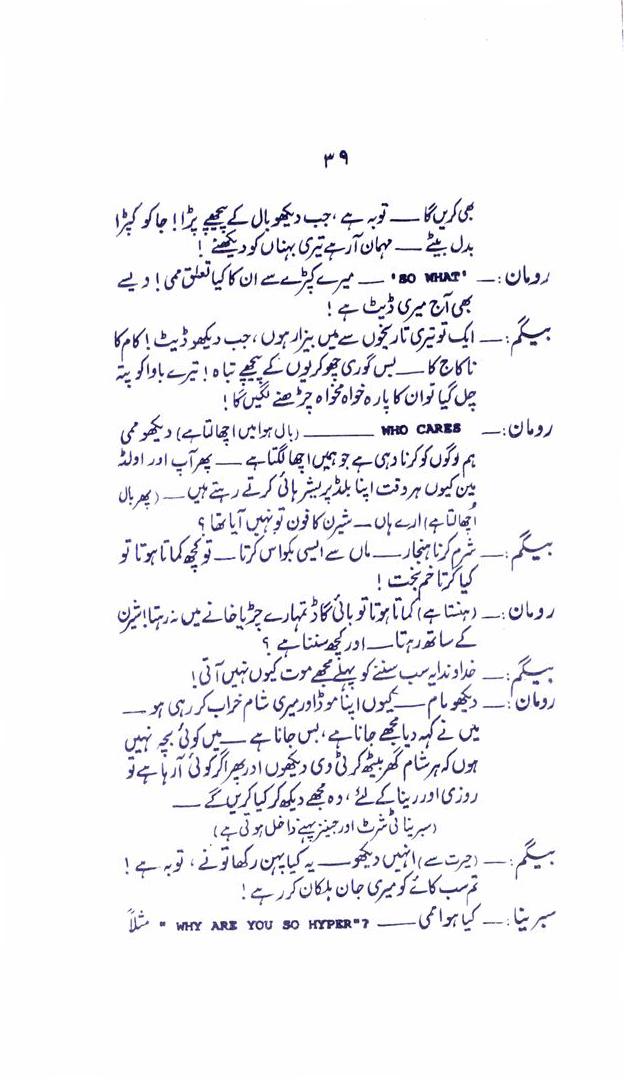 ۳۹
بھی کریں گا ___ توبہ ہے ، جب دیکھو بال کے پیچھے پڑا ! جا کو کپڑا
بدل بیٹے ___ مہمان آر ہے تیری بہناں کو دیکھنے !
رومان :__ 'SO WHAT' __ میرے کپڑے سے ان کا کیا تعلق ممی ! ویسے
بھی آج میری ڈیٹ ہے !
بیگم :__ ایک تو تیری تاریخوں سے میں بیزار ہوں ، جب دیکھو ڈیٹ ! کام کا
نا کاج کا ___ بس گوری چھوکریوں کے پیچھے تباہ ! تیرے باوا کو پتہ
چل گیا تو ان کا پارہ خواہ مخواہ چڑھنے لگیں گا !
رومان :__ WHO CARES ______ (بال ہوا میں اچھالتا ہے) دیکھو ممی
ہم لوگوں کو کرنا وہی ہے جو ہمیں اچھا لگتا ہے ___ پھر آپ اور اولڈ
مین کیوں ہر وقت اپنا بلڈ پریشر ہائی کرتے رہتے ہیں ___ (پھر بال
اُچھالتا ہے) ارے ہاں ___ شیرن کا فون تو نہیں آیا تھا ؟
بیگم :__ شرم کر ناہنجار ___ ماں سے ایسی بکواس کرتا ___ تو کچھ کماتا ہوتا تو
کیا کرتا کم بخت !
رومان :__ (ہنستا ہے) کماتا ہوتا تو بائی گاڈ تمہارے چڑیا خانے میں نہ رہتا ! شیرن
کے ساتھ رہتا ___ اور کچھ سننا ہے ؟
بیگم :__ خداوندا یہ سب سننے کو پہلے مجھے موت کیوں نہیں آتی !
رومان :__ دیکھو مام ___ کیوں اپنا موڈ اور میری شام خراب کر رہی ہو ___
میں نے کہہ دیا مجھے جانا ہے ، بس جانا ہے ___ میں کوئی بچہ نہیں
ہوں کہ ہر شام گھر بیٹھ کر ٹی وی دیکھوں اور پھر اگر کوئی آ رہا ہے تو
روزی اور رینا کے لئے ، وہ مجھے دیکھ کر کیا کریں گے ___
(سبرینا ٹی شرٹ اور جینز پہنے داخل ہوتی ہے)
بیگم :__ (حیرت سے) انہیں دیکھو ___ یہ کیا پہن رکھا تو نے ، توبہ ہے !
تم سب کائے کو میری جان ہلکان کر رہے !
سبرینا :__ کیا ہوا ممی ____ "WHY ARE YOU SO HYPER"? مثلاً